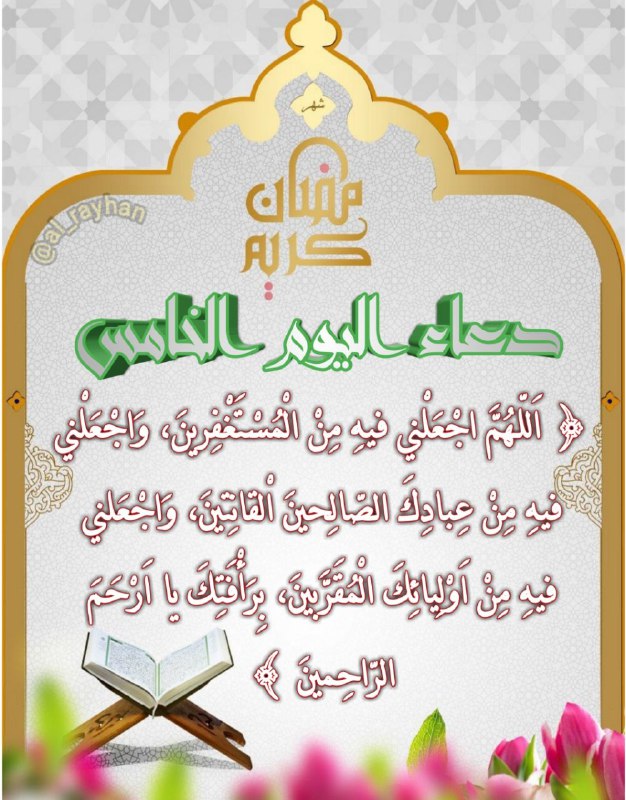 شهر
رمضان
كريم
@al_rayhan
دعاء اليوم الخامس
﴿ اَللّهُمَّ اجْعَلْني فيهِ مِنْ الْمُسْتَغْفِرينَ، وَاجْعَلْني
فيهِ مِنْ عِبادِكَ الصّالِحينَ اْلقانِتينَ، وَاجْعَلني
فيهِ مِنْ اَوْلِيائِكَ الْمُقَرَّبينَ، بِرَأْفَتِكَ يا اَرْحَمَ
الرّاحِمينَ ﴾